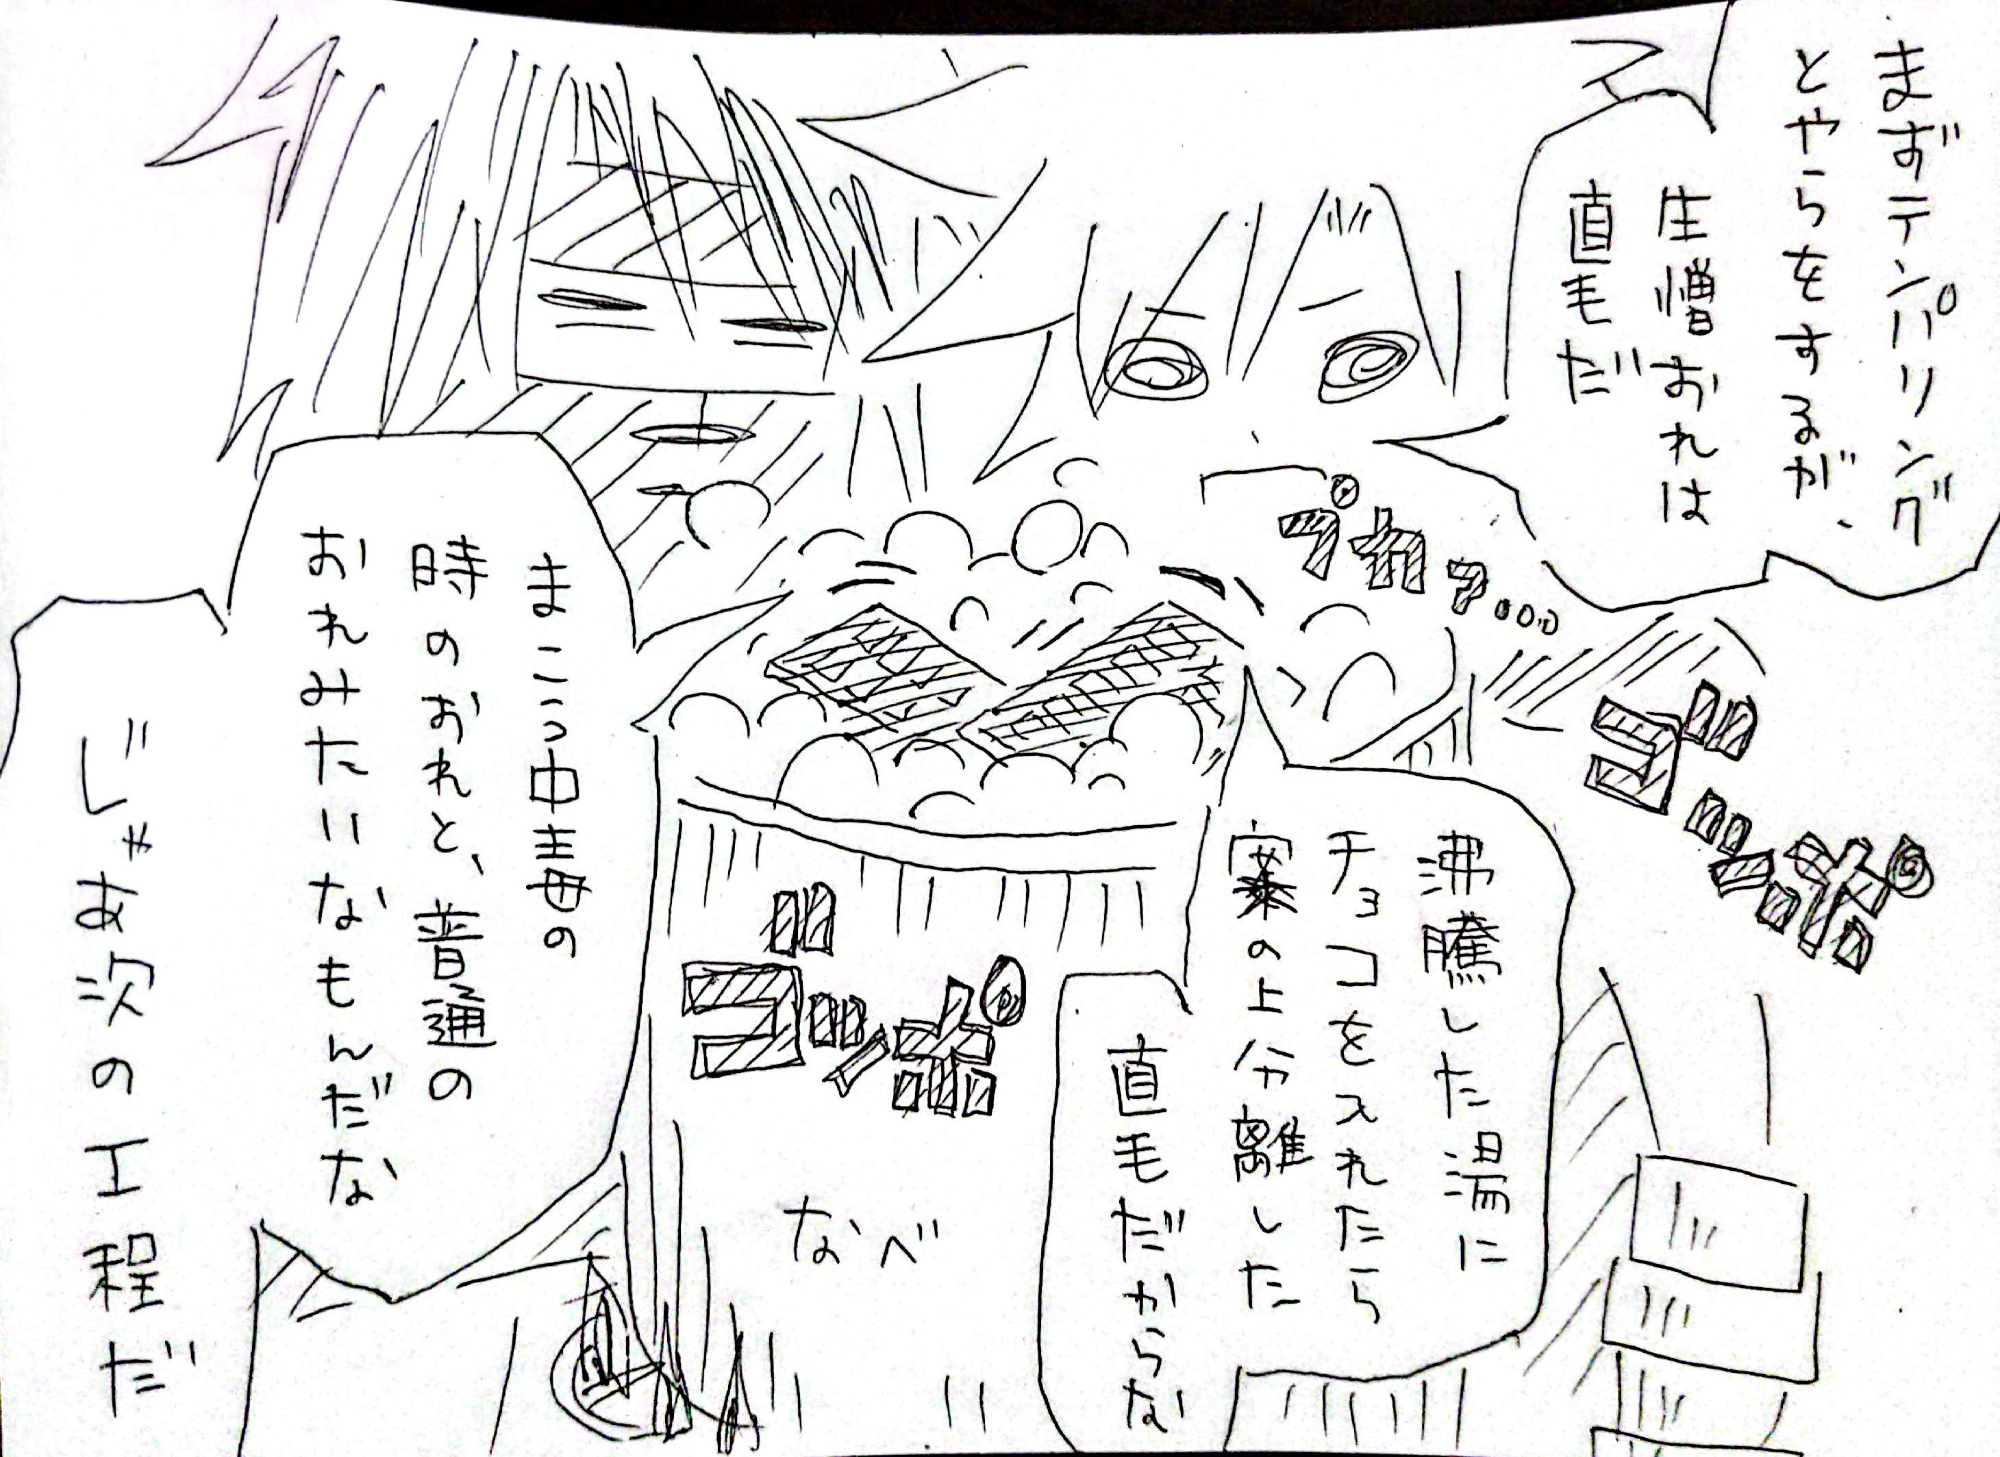 まずテンパリング
とやらをするが、
生憎おれは
直毛だ
プカァ...
ゴポッ
沸騰した湯に
チョコを入れたら
案の上分離した
直毛だからな
ゴポッ
なべ
まこっ中毒の
時のおれと、普通の
おれみたいなもんだな
じゃあ次の工程だ